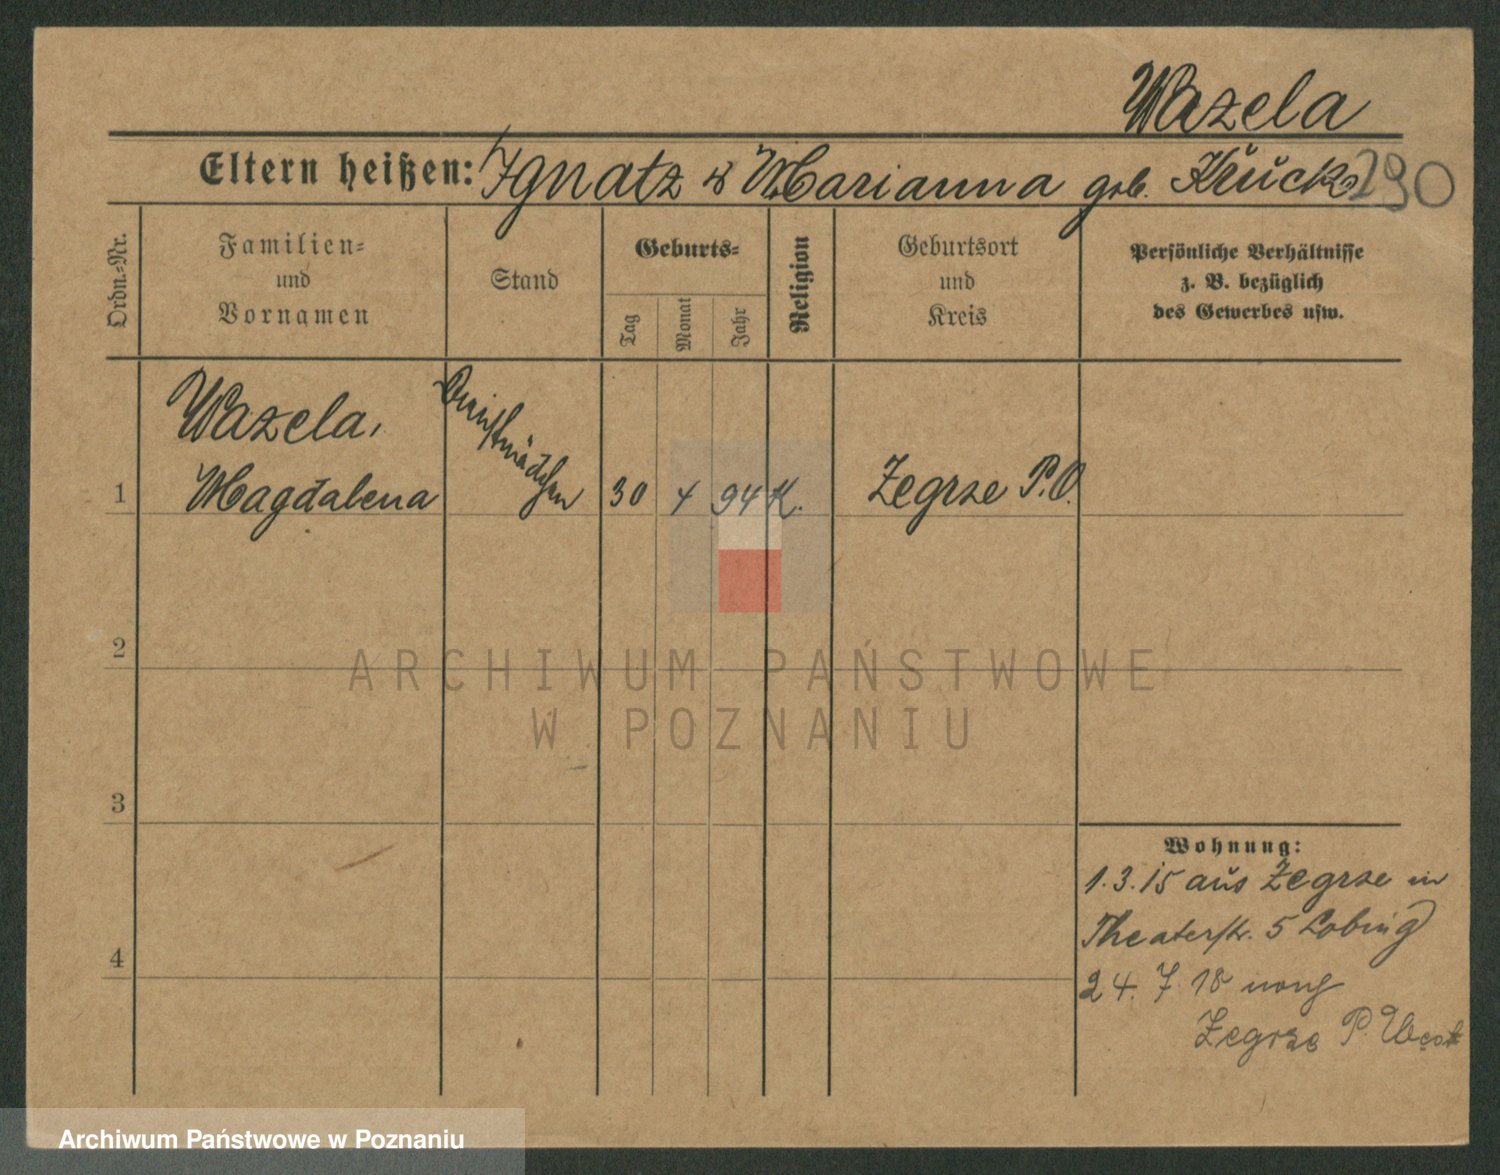 Wazela
Eltern heißen: Ignatz & Marianna geb. Kruck
290
Ordn.=Nr.
Familien=
und
Vornamen
Stand
Geburts=
Tag
Monat
Jahr
Religion
Geburtsort
und
Kreis
Persönliche Verhältnisse
z. B. bezüglich
des Gewerbes usw.
1
Wazela,
Magdalena
Dienstmädchen
30
4
94
K.
Zegrze P.O.
2
3
4
Wohnung:
1.3.15 aus Zegrze in
Theaterstr. 5 Lobing
24.7.18 nach
Zegrze P. West
ARCHIWUM PAŃSTWOWE
W POZNANIU
Archiwum Państwowe w Poznaniu